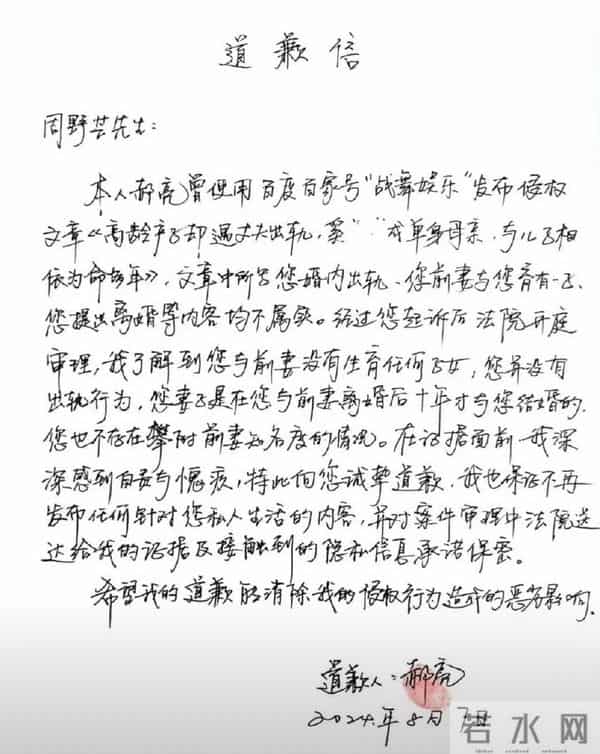 道歉信
周野芒先生:
本人郝亮曾使用百度百家号“战舞娱乐”发布侵权
文章《高龄产子却遇丈夫出轨,奚 成单身母亲,与儿子相
依为命多年》,文章中所写您婚内出轨、您前妻与您育有一子、
您提出离婚等内容均不属实。经过您起诉后法院开庭
审理,我了解到您与前妻没有生育任何子女,您并没有
出轨行为,您妻子是在您与前妻离婚后十年才与您结婚的,
您也不存在攀附前妻知名度的情况。在证据面前我深
深感到自责与愧疚,特此向您诚挚道歉,我也保证不再
发布任何针对您私人生活的内容,并对案件审理中法院送
达给我的证据及接触到的隐私信息承诺保密。
希望我的道歉能消除我的侵权行为造成的恶劣影响。
道歉人:郝亮
2024年8月7日
若水网